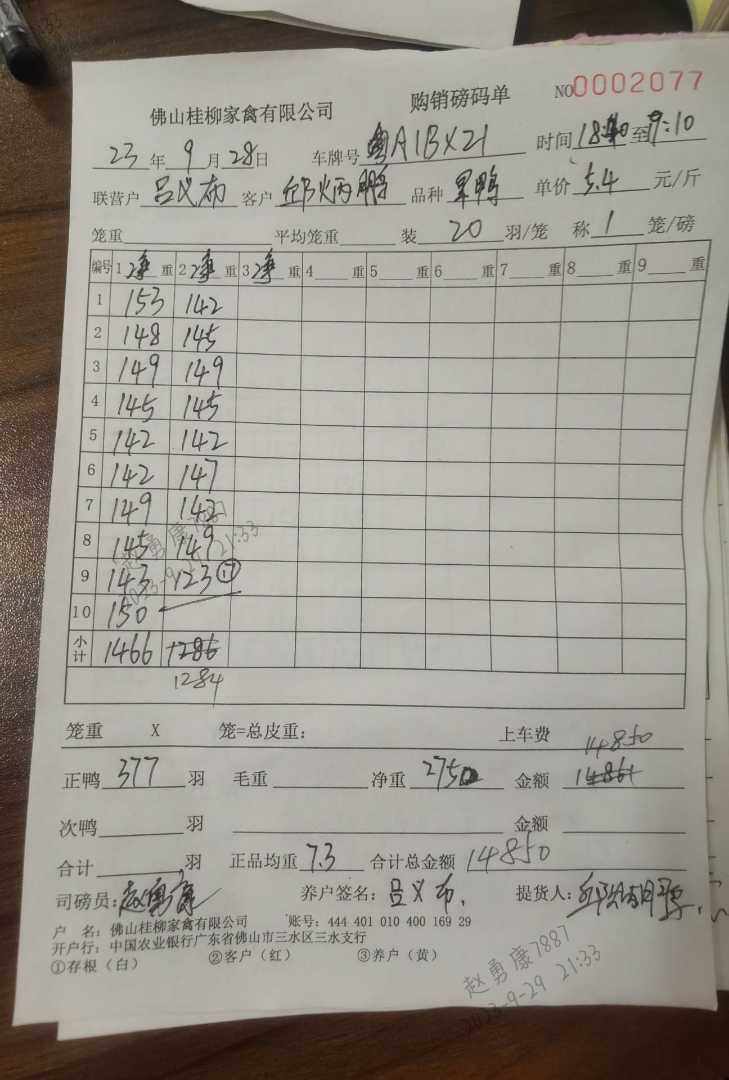 佛山桂柳家禽有限公司 购销磅码单 NO0002077
23年9月28日 车牌号粤A1BX21 时间 至9:10
联营户吕义布 客户邱炳鹏 品种 单价5.4元/斤
笼重 平均笼重 装20羽/笼 称1笼/磅
编号 1净重 2净重 3净重 4重 5重 6重 7重 8重 9重
1 153 142
2 148 145
3 149 149
4 145 145
5 142 142
6 142 147
7 149 142
8 145 149
9 143 123 ⑰
10 150
小计 1466 1286
1284
笼重 X 笼=总皮重: 上车费
14850
正鸭377羽 毛重 净重2750 金额14861
次鸭 羽 金额
合计 羽 正品均重7.3 合计总金额14850
司磅员:赵勇康 养户签名:吕义布. 提货人:邱炳鹏.
户 名:佛山桂柳家禽有限公司 账号:444 401 010 400 169 29
开户行:中国农业银行广东省佛山市三水区三水支行
①存根(白) ②客户(红) ③养户(黄)
赵勇康7887
2023-9-29 21:33
赵勇康7887
2023-9-29 21:33